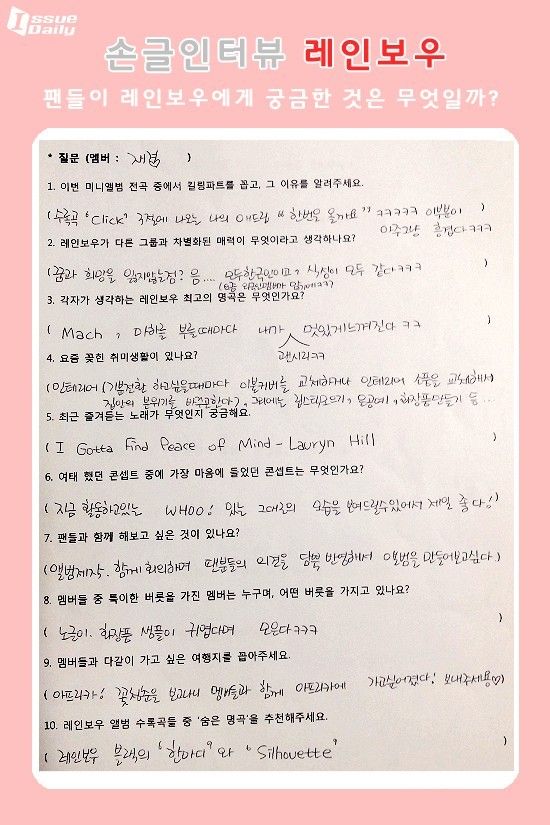 Issue
Daily
손글인터뷰 레인보우
팬들이 레인보우에게 궁금한 것은 무엇일까?
* 질문 (멤버 : 재경 )
1. 이번 미니앨범 전곡 중에서 킬링파트를 꼽고, 그 이유를 알려주세요.
(수록곡 "Click" 2절에 나오는 나의 애드립 "한번을 올까요" ㅋㅋㅋㅋㅋ 이부분이
아주그냥 흥겹다ㅋㅋㅋ )
2. 레인보우가 다른 그룹과 차별화된 매력이 무엇이라고 생각하나요?
(꿈과 희망을 잃지않는점? 음... 모두한국인이고, 식성이 모두 같다ㅋㅋㅋ )
(요즘 외국인멤버가 많기에ㅋㅋ)
3. 각자가 생각하는 레인보우 최고의 명곡은 무엇인가요?
( Mach, 마하를 부를때마다 내가 멋있게느껴진다 ㅋㅋ )
괜시리ㅋㅋ
4. 요즘 꽂힌 취미생활이 있나요?
(인테리어 (기분전환 하고싶을때마다 이불커버를 교체하거나 인테리어 소품을 교체해서
집안의 분위기를 바꾸곤한다?, 그외에는 립스틱만들기, 은공예, 화장품만들기 등 ... )
5. 최근 즐겨듣는 노래가 무엇인지 궁금해요.
( I Gotta Find Peace of Mind - Lauryn Hill )
6. 여태 했던 콘셉트 중에 가장 마음에 들었던 콘셉트는 무엇인가요?
( 지금 활동하고있는 WHOO! 있는 그대로의 모습을 보여드릴수있어서 제일 좋다! )
7. 팬들과 함께 해보고 싶은 것이 있나요?
(앨범제작. 함께 회의하며 팬분들의 의견을 듬뿍 반영해서 앨범을 만들어보고싶다 )
8. 멤버들 중 특이한 버릇을 가진 멤버는 누구며, 어떤 버릇을 가지고 있나요?
( 노을이. 화장품 샘플이 귀엽다며 모은다ㅋㅋㅋ )
9. 멤버들과 다같이 가고 싶은 여행지를 꼽아주세요.
(아프리카! 꽃청춘을 보고나니 멤버들과 함께 아프리카에 가고싶어졌다! 보내주세용♡)
10. 레인보우 앨범 수록곡들 중 '숨은 명곡'을 추천해주세요.
( 레인보우 블랙의 "한마디" 와 "Silhouette" )